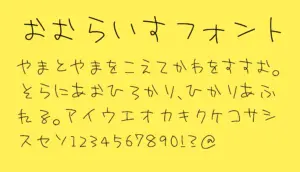 おむらいすフォント
やまとやまをこえてかわをすすむ。
そらにあおひろがり、ひかりあふ
れる。アイウエオカキクケコサシ
スセソ1234567890!?@